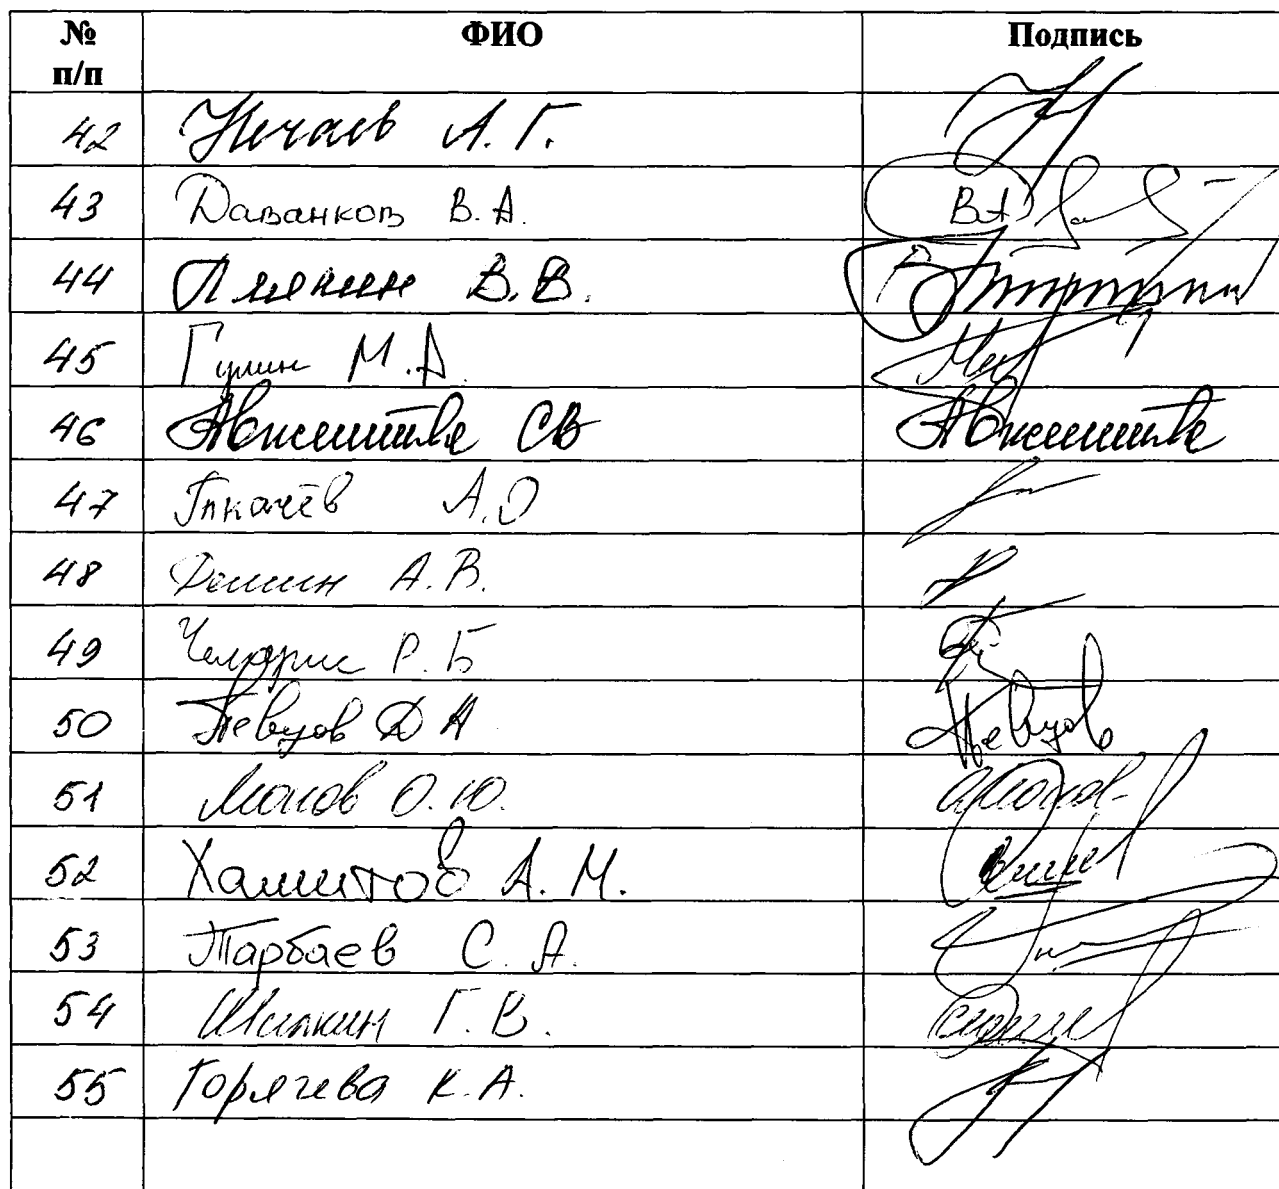 № п/п ФИО Подпись
42 Нечаев А. Г.
43 Даванков В. А. ВА
44 Плякин В. В.
45 Гулин М. А.
46 Авксентьева СВ Авксентьева
47 Ткачёв А. О
48 Демин А. В.
49 Чемерис Р. Б
50 Певцов Д А Певцов
51 Леонов О. Ю.
52 Хамитов А. М.
53 Тарбаев С. А.
54 Шилкин Г. В.
55 Горячева К. А.